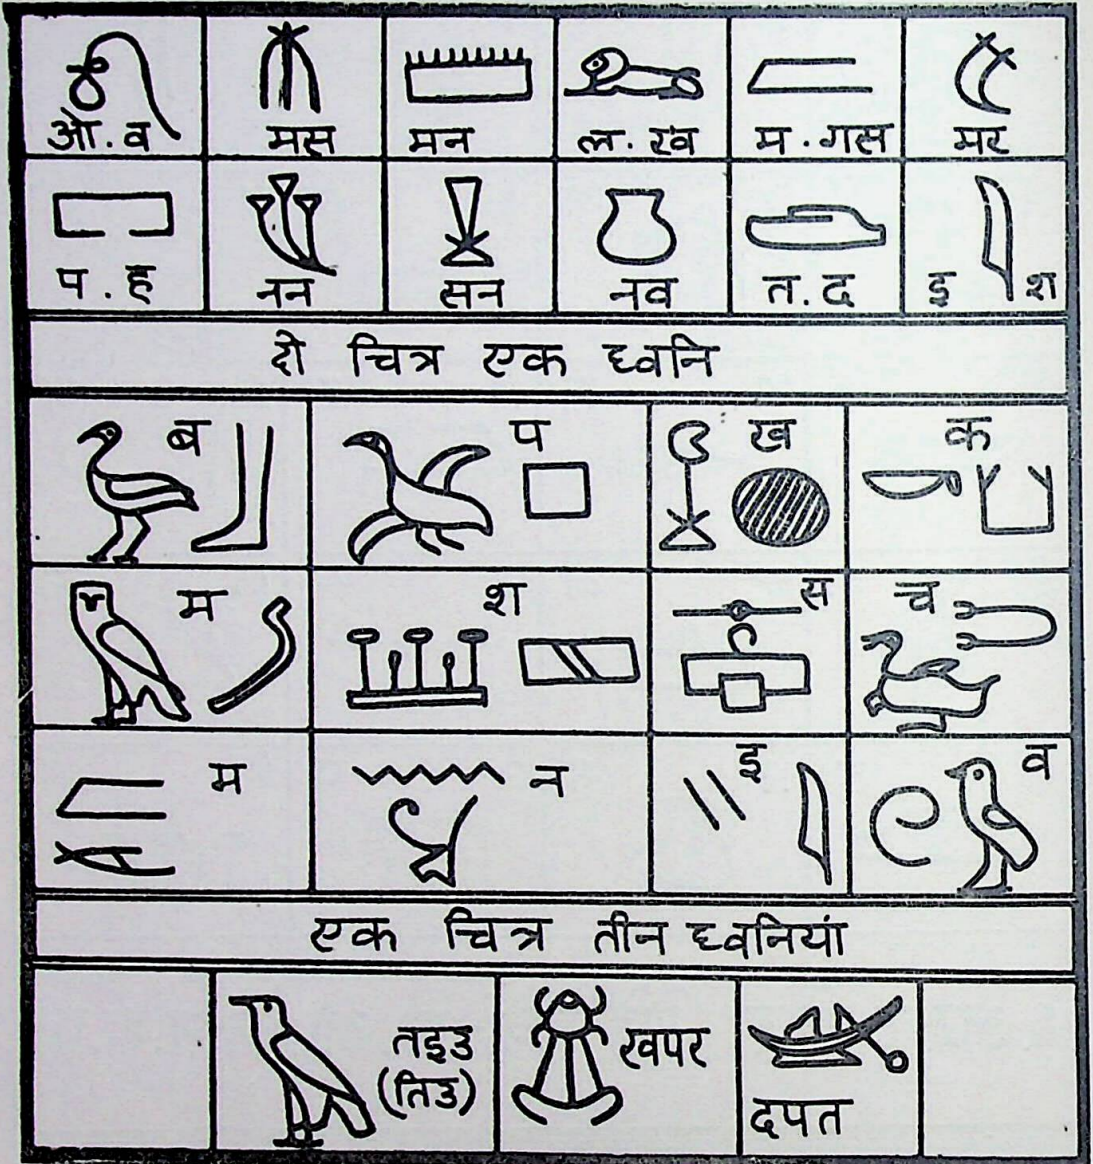 ओ.व मस मन ल.ख म.गस मर
प.ह नन सन नव त.द इ श
दो चित्र एक ध्वनि
ब प ख क
म श स च
म न इ व
एक चित्र तीन ध्वनियां
तइउ
(तिउ)
खपर
दपत